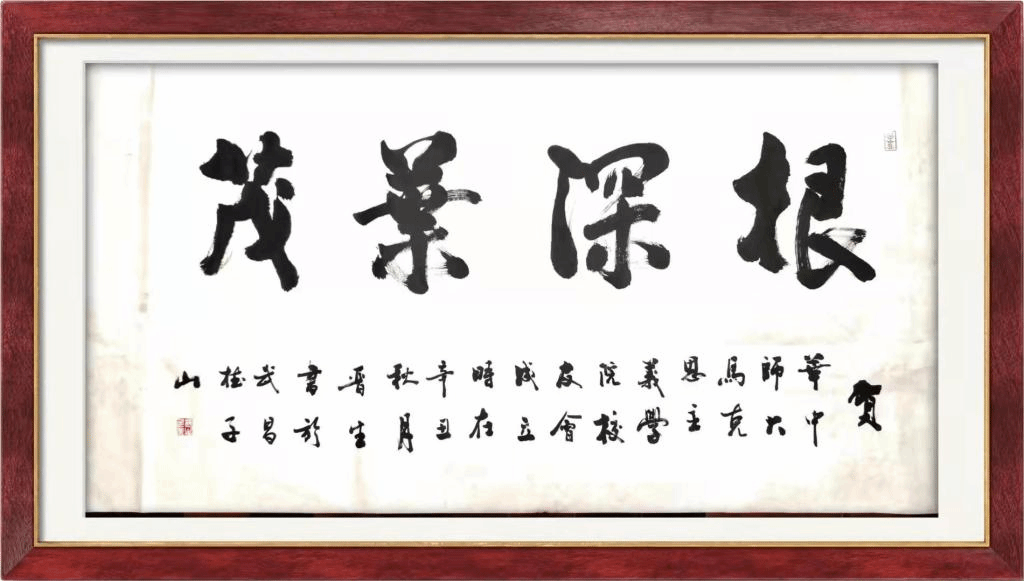 根深葉茂
賀
華中
師大
馬克
思主
義學
院校
友會
成立
時在
辛丑
秋月
晋生
書於
武昌
桂子
山